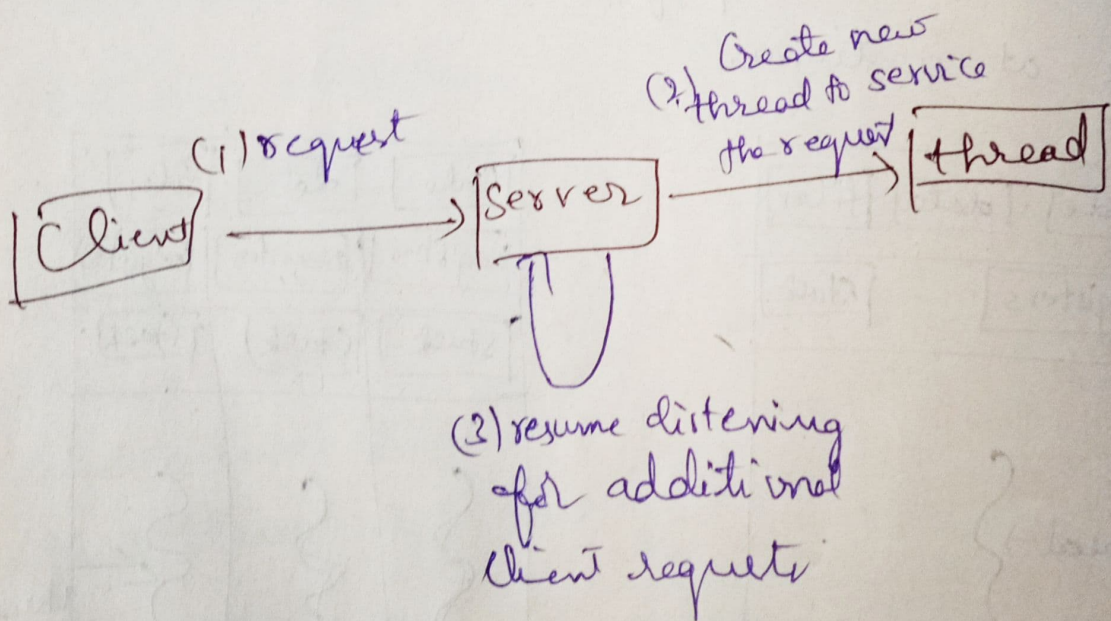 (1) request
Client
Server
(2) Create new
thread to service
the request
thread
(3) resume listening
for additional
Client requests